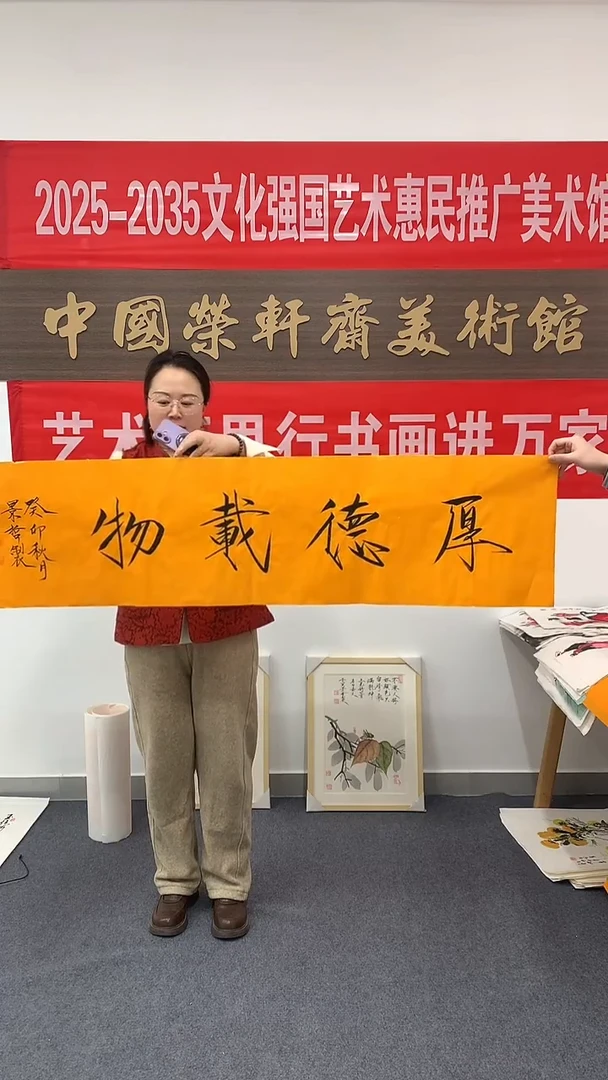 2025-2035文化强国艺术惠民推广美术馆
中國榮軒齋美術館
艺术 里行书画进万家
厚德載物
癸卯秋月
景哲製